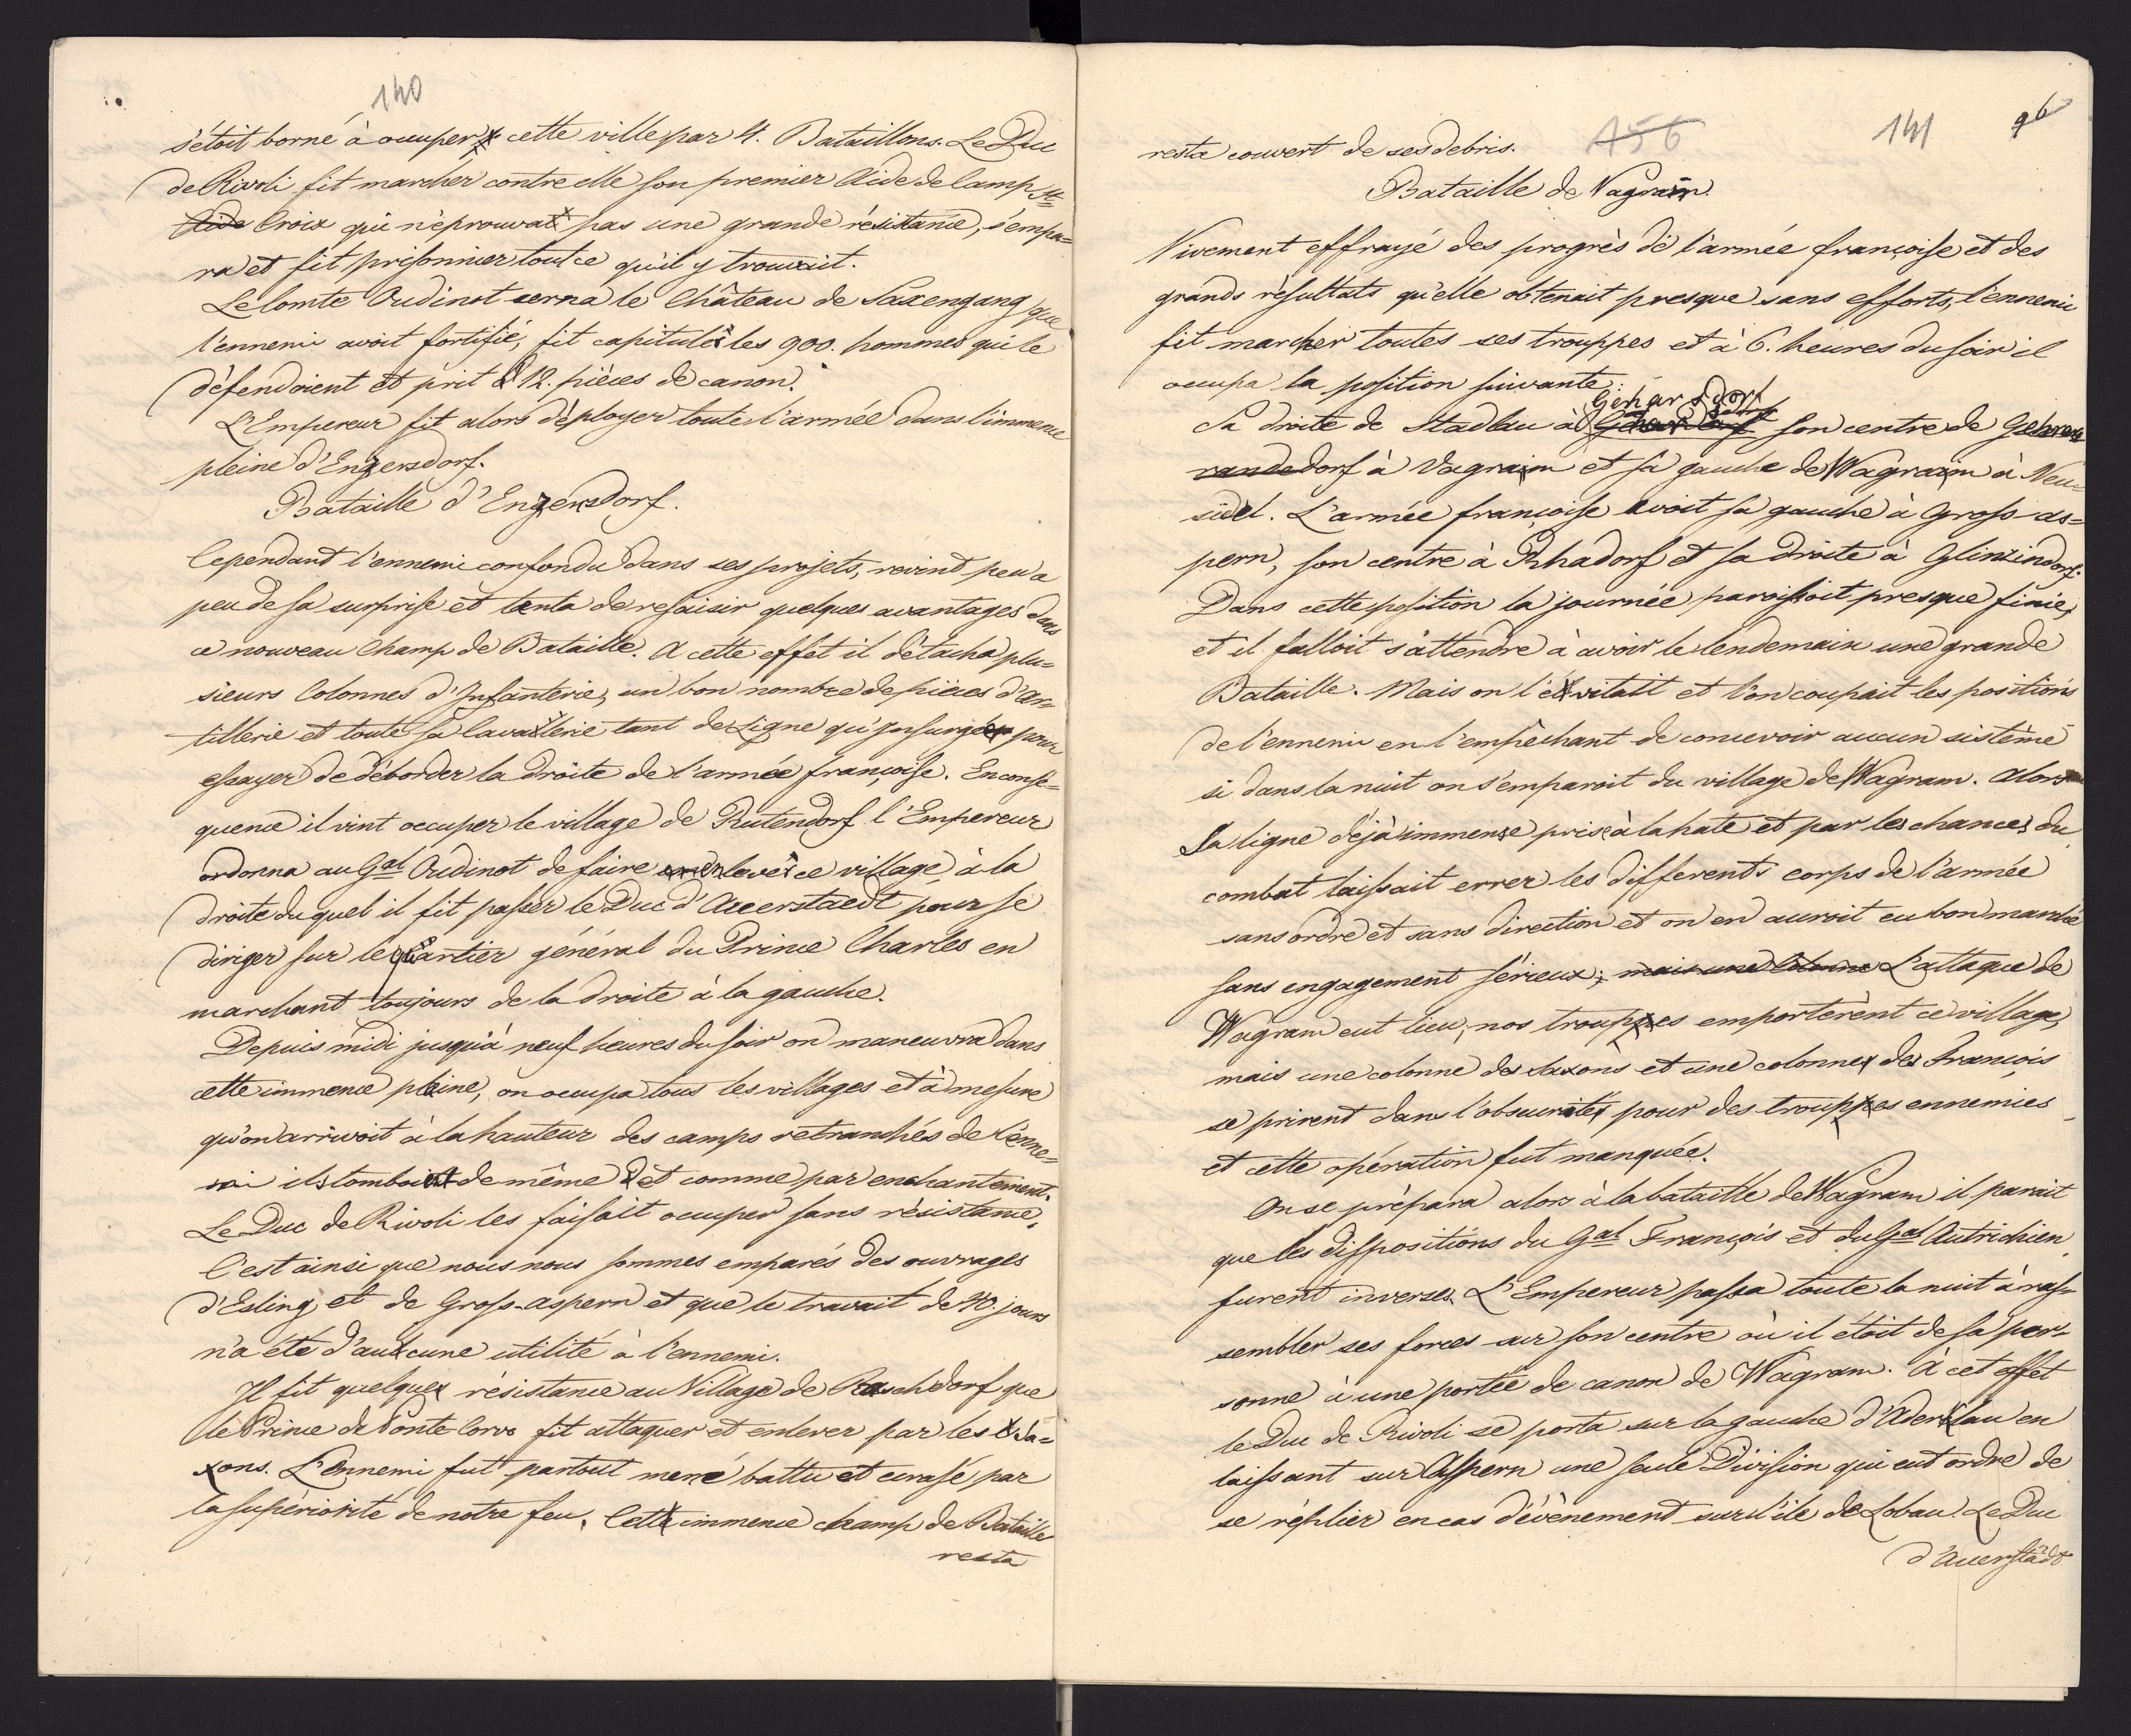 140
s'étoit borné à occuper cette ville par 4. Bataillons. Le Duc
de Rivoli fit marcher contre elle son premier Aide de Camp St
Aide Croix qui n'éprouvat pas une grande résistance, s'empa=
ra et fit prisonnier tout ce qu'il y trouvait.
Le Comte Oudinot cerna le Château de Saxengang que
l'ennemi avoit fortifié, fit capituler les 900. hommes qui le
défendoient et prit 12. pièces de canon.
L'Empereur fit alors déployer toute l'armée dans l'immense
pleine d'Enzersdorf.
Bataille d'Enzersdorf.
Cependant l'ennemi confondu dans ses projets, revint peu a
peu de sa surprise et tenta de resaisir quelques avantages dans
ce nouveau Champ de Bataille. A cette effet il détacha plu=
sieurs Colonnes d'Infanterie, un bon nombre de pièces d'ar=
tillerie et toute sa Cavallerie tant de Ligne qu'insurgée pour
essayer de déborder la droite de l'armée françoise. En conse=
quence il vint occuper le village de Rutendorf l'Empereur
ordonna au Gal Oudinot de faire enlever ce village, à la
droite duquel il fit passer le Duc d'Auerstaedt pour se
diriger sur le quartier général du Prince Charles en
marchant toujours de la droite à la gauche.
Depuis midi jusqu'à neuf heures du soir on maneuvra dans
cette immence pleine, on occupa tous les villages et à mesure
qu'on arrivoit à la hauteur des camps retranchés de l'enne=
mi ils tomboient de même et comme par enchantement.
Le Duc de Rivoli les faisait occuper sans résistance.
C'est ainsi que nous nous sommes emparés des ouvrages
d'Esling et de Gross-aspern et que le travait de 40. jours
n'a été d'aucune utilité à l'ennemi.
Il fit quelque résistance au Village de Raschdorf que
le Prince de Ponte-Corvo fit attaquer et enlever par les Sa=
xons. L'Ennemi fut partout mené battu et ecrasé par
la supériorité de notre feu. Cette immence champ de Bataille
resta
156 141 96
resta couvert de ses debris.
Bataille de Wagram.
Vivement effrayé des progrès de l'armée françoise et des
grands résultats qu'elle obtenait presque sans efforts, l'ennemi
fit marcher toutes ses trouppes et à 6. heures du soir il
occupa la position suivante:
Gerharsdorf
Sa droite de Stadlau à son centre de
randsdorf à Vagram et sa gauche de Wagram à Neu=
siedel. L'armée françoise avoit sa gauche à Gross-as=
pern, son centre à Rhadorf et sa droite à Glinzindorf.
Dans cette position la journée paroissoit presque finie,
et il falloit s'attendre à avoir le lendemain une grande
Bataille. Mais on l'évitait et l'on coupait les positions
de l'ennemi en l'empêchant de concevoir aucun sistème
si dans la nuit on s'emparoit du village de Wagram. Alors
Sa ligne déjà immense prise à la hate et par les chances du
combat laissait errer les differents corps de l'armée
sans ordre et sans direction et on en auroit eu bon marché
sans engagement sérieux; mais une Colonne L'attaque de
Wagram eut lieu; nos trouppes emportèrent ce village,
mais une colonne des Saxons et une colonne des François
se prirent dans l'obscurité pour des trouppes ennemies
et cette opération fut manquée.
On se prépara alors à la bataille de Wagram il parait
que les dispositions du Gal François et du Gal Autrichien
furent inverses. L'Empereur passa toute la nuit à ras=
sembler ses forces sur son centre où il étoit de sa per=
sonne à une portée de canon de Wagram. A cet effet
le Duc de Rivoli se porta sur la gauche d'Aderklau en
laissant sur Aspern une seule Division qui eut ordre de
se réplier en cas d'évènement sur l'île de Lobau. Le Duc
d'Auerstädt